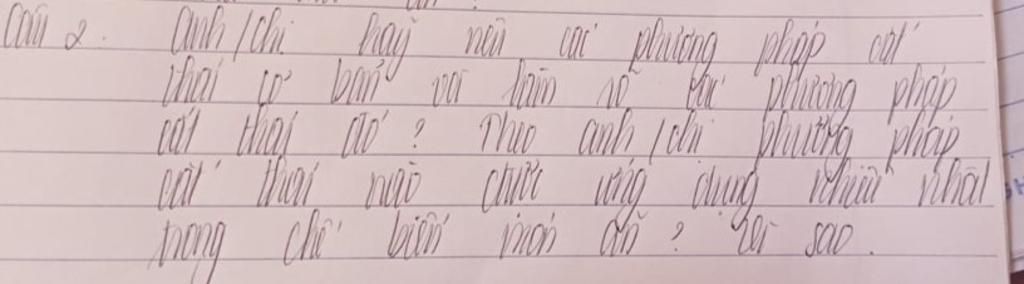 Câu 2. Anh/chị hãy nêu các phương pháp cắt
thái cơ bản và làm rõ các phương pháp
cắt thái đó? Theo anh/chị phương pháp
cắt thái nào được ứng dụng nhiều nhất
trong chế biến món ăn? Vì sao.